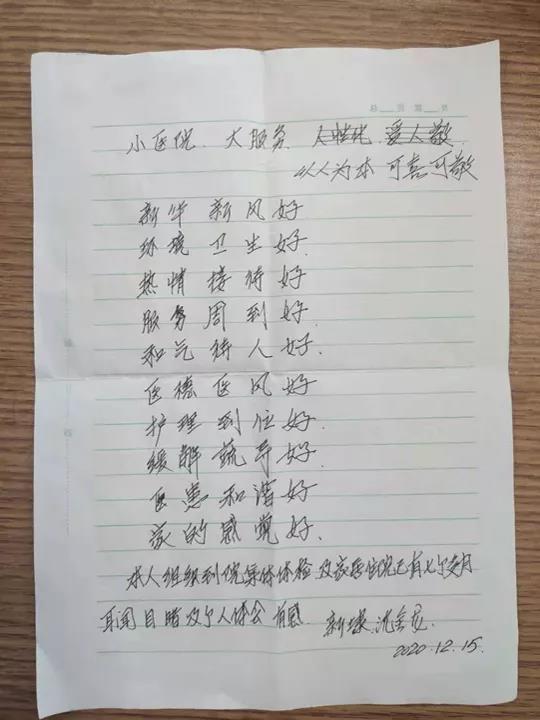 总 页 第 页
小医院. 大服务. 人性化. 爱人敬.
以人为本 可喜可敬
新华新风好
环境卫生好.
热情接待好
服务周到好.
和气待人好.
医德医风好
护理到位好.
缓解疏导好.
医患和谐好
家的感觉好.
本人组织到院集体体检及家属住院已有七个多月
耳闻目睹及个人体会有感. 新
2020.12.15.